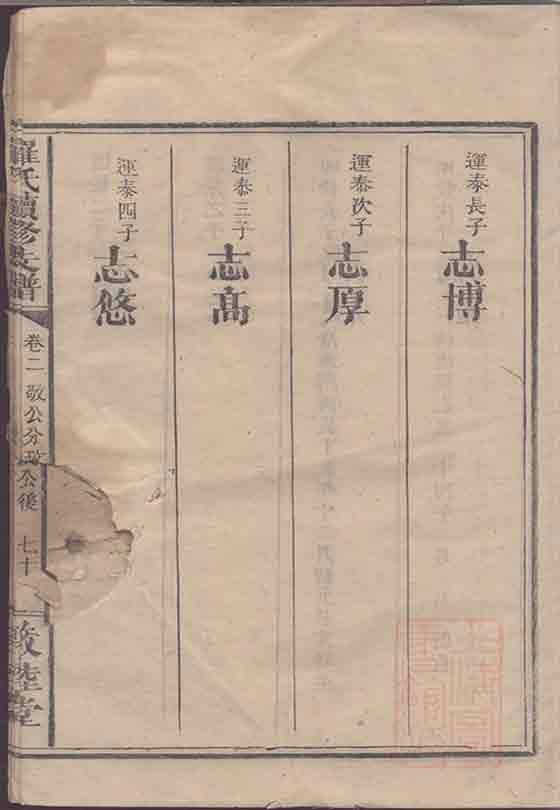 運泰長子 志博
運泰次子 志厚
運泰三子 志高
運泰四子 志悠
羅氏續修支譜
卷二 敬公分政公後 七十
敦睦堂